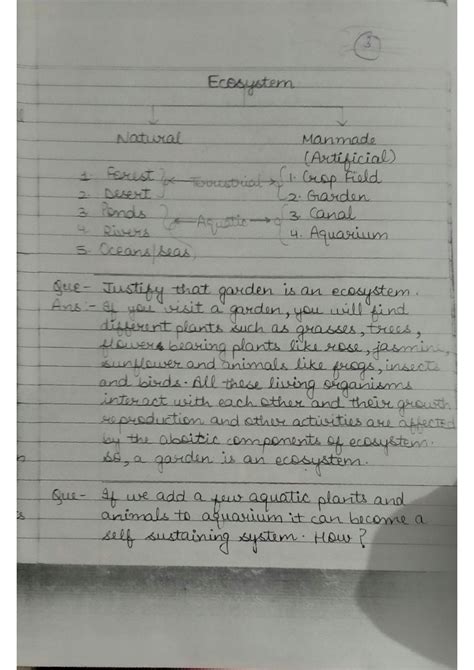 3
Ecosystem
Natural Manmade
(Artificial)
1. Forest Terrustrial 1. Crop Field
2. Desert 2. Garden
3. Ponds Aquatic 3. Canal
4. Rivers 4. Aquarium
5. Oceans/seas
Que - Justify that garden is an ecosystem.
Ans:- If you visit a garden, you will find
different plants such as grasses, trees,
flowers bearing plants like rose, jasmine,
sunflower and animals like frogs, insects
and birds. All these living organisms
interact with each other and their growth
reproduction and other activities are affected
by the aboitic components of ecosystem.
So, a garden is an ecosystem.
Que - If we add a few aquatic plants and
animals to aquarium it can become a
self sustaining system. How?